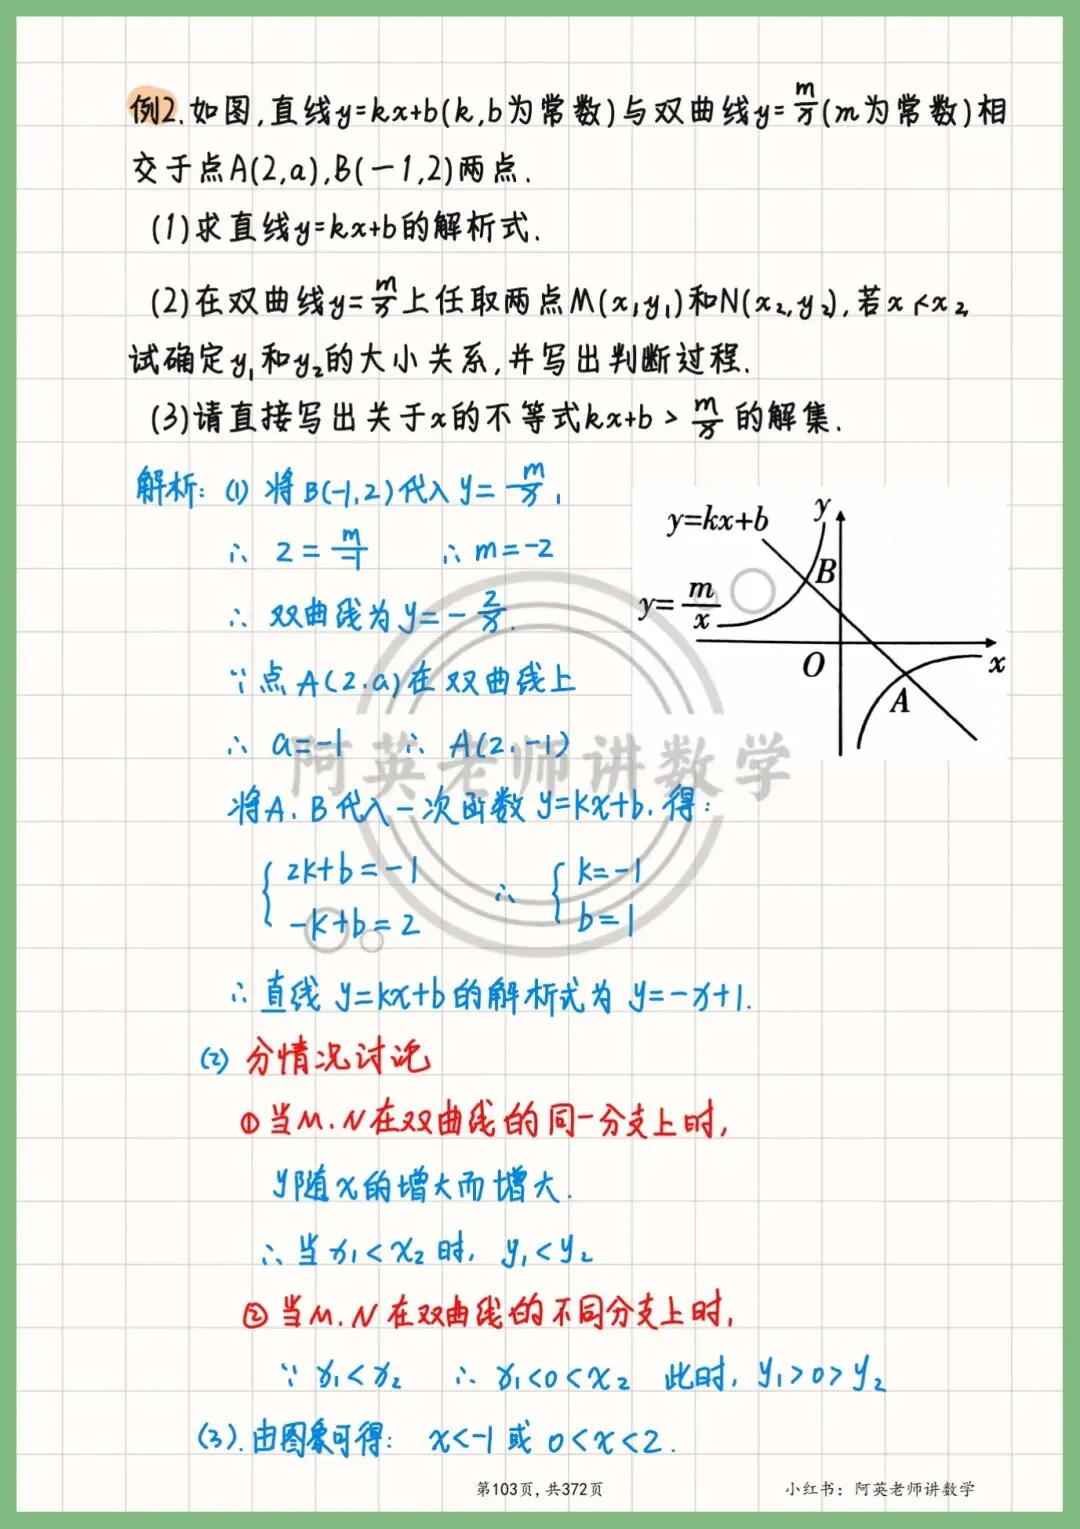 例2.如图,直线y=kx+b(k,b为常数)与双曲线y=m/x(m为常数)相
交于点A(2,a),B(-1,2)两点.
(1)求直线y=kx+b的解析式.
(2)在双曲线y=m/x上任取两点M(x₁,y₁)和N(x₂,y₂),若x<x₂,
试确定y₁和y₂的大小关系,并写出判断过程.
(3)请直接写出关于x的不等式kx+b>m/x的解集.
解析: (1) 将B(-1,2)代入 y=m/x,
∴ 2=m/-1 ∴ m=-2
∴ 双曲线为y=-2/x.
∵点A(2,a)在双曲线上
∴ a=-1 ∴ A(2,-1)
将A、B代入一次函数y=kx+b,得:
{ 2k+b=-1 ∴ { k=-1
-k+b=2 b=1
∴直线y=kx+b的解析式为 y=-x+1.
(2) 分情况讨论
①当M、N在双曲线的同一分支上时,
y随x的增大而增大.
∴当x₁<x₂时, y₁<y₂
②当M、N在双曲线的不同分支上时,
∵ x₁<x₂ ∴ x₁<0<x₂ 此时, y₁>0>y₂
(3).由图象可得: x<-1或0<x<2.
y=kx+b
y
B
y=m/x
O
x
A
阿英老师讲数学
第103页,共372页
小红书: 阿英老师讲数学